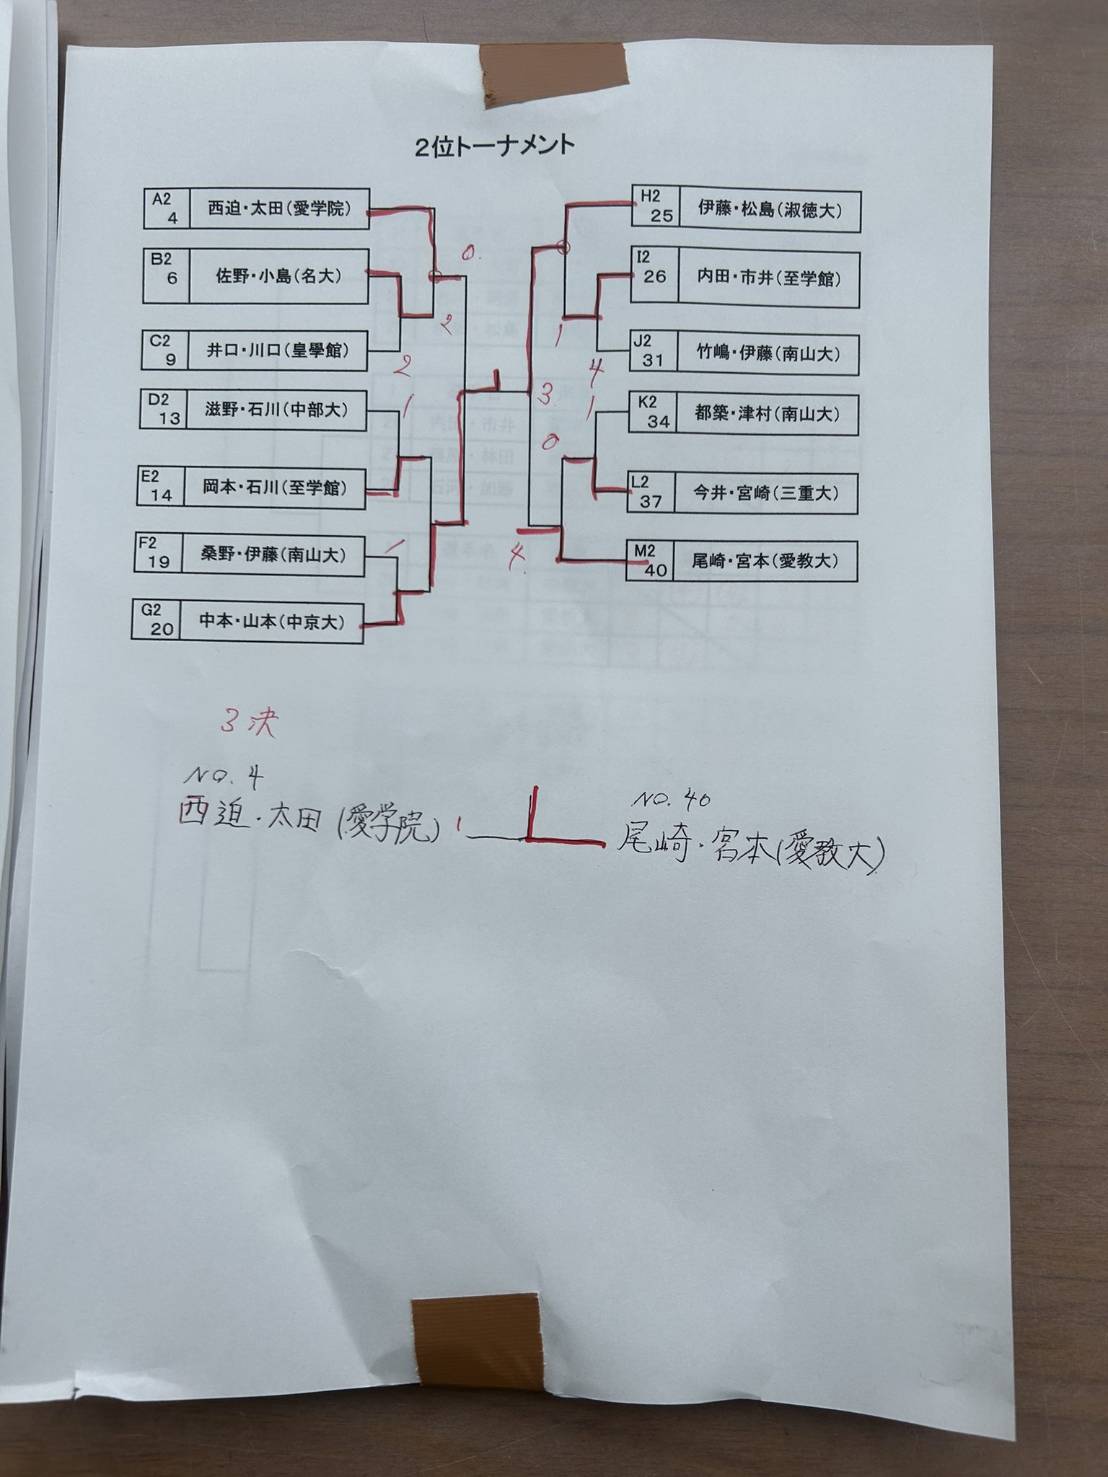 2位トーナメント
A2 4 西迫・太田(愛学院)
B2 6 佐野・小島(名大)
C2 9 井口・川口(皇學館)
D2 13 滋野・石川(中部大)
E2 14 岡本・石川(至学館)
F2 19 桑野・伊藤(南山大)
G2 20 中本・山本(中京大)
0
2
2
1
1
H2 25 伊藤・松島(淑徳大)
I2 26 内田・市井(至学館)
J2 31 竹嶋・伊藤(南山大)
K2 34 都築・津村(南山大)
L2 37 今井・宮崎(三重大)
M2 40 尾崎・宮本(愛教大)
1
4
3
1
0
4
3決
NO.4
西迫・太田(愛学院) 1
NO.40
尾崎・宮本(愛教大)